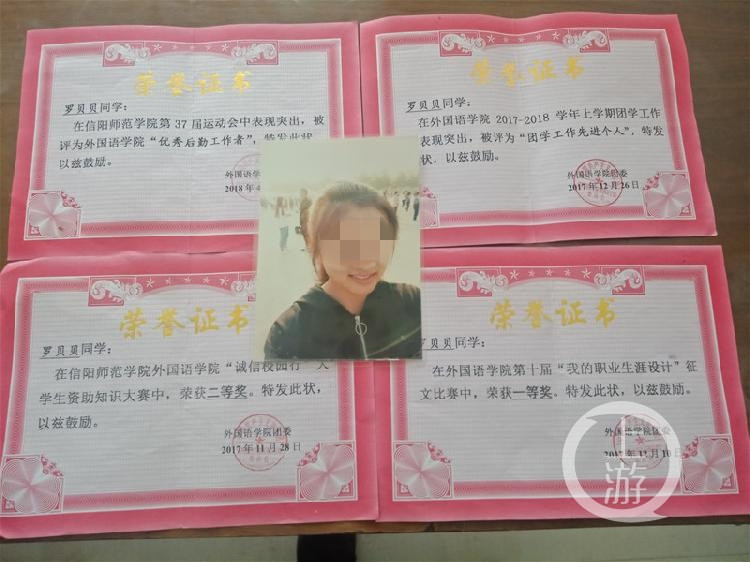 荣誉证书
罗贝贝同学：
在信阳师范学院第37届运动会中表现突出，被
评为外国语学院“优秀后勤工作者”，特发此状，
以兹鼓励。
外国语学院
2018年4
荣誉证书
罗贝贝同学：
在外国语学院2017-2018学年上学期团学工作
表现突出，被评为“团学工作先进个人”，特发
状，以兹鼓励。
外国语学院团委
2017年12月26日
荣誉证书
罗贝贝同学：
在信阳师范学院外国语学院“诚信校园行”大
学生资助知识大赛中，荣获二等奖。特发此状，
以兹鼓励。
外国语学院团委
2017年11月28日
荣誉证书
罗贝贝同学：
在外国语学院第十届“我的职业生涯设计”征
文比赛中，荣获一等奖。特发此状，以兹鼓励。
外国语学院团委
2017年11月10日
上游